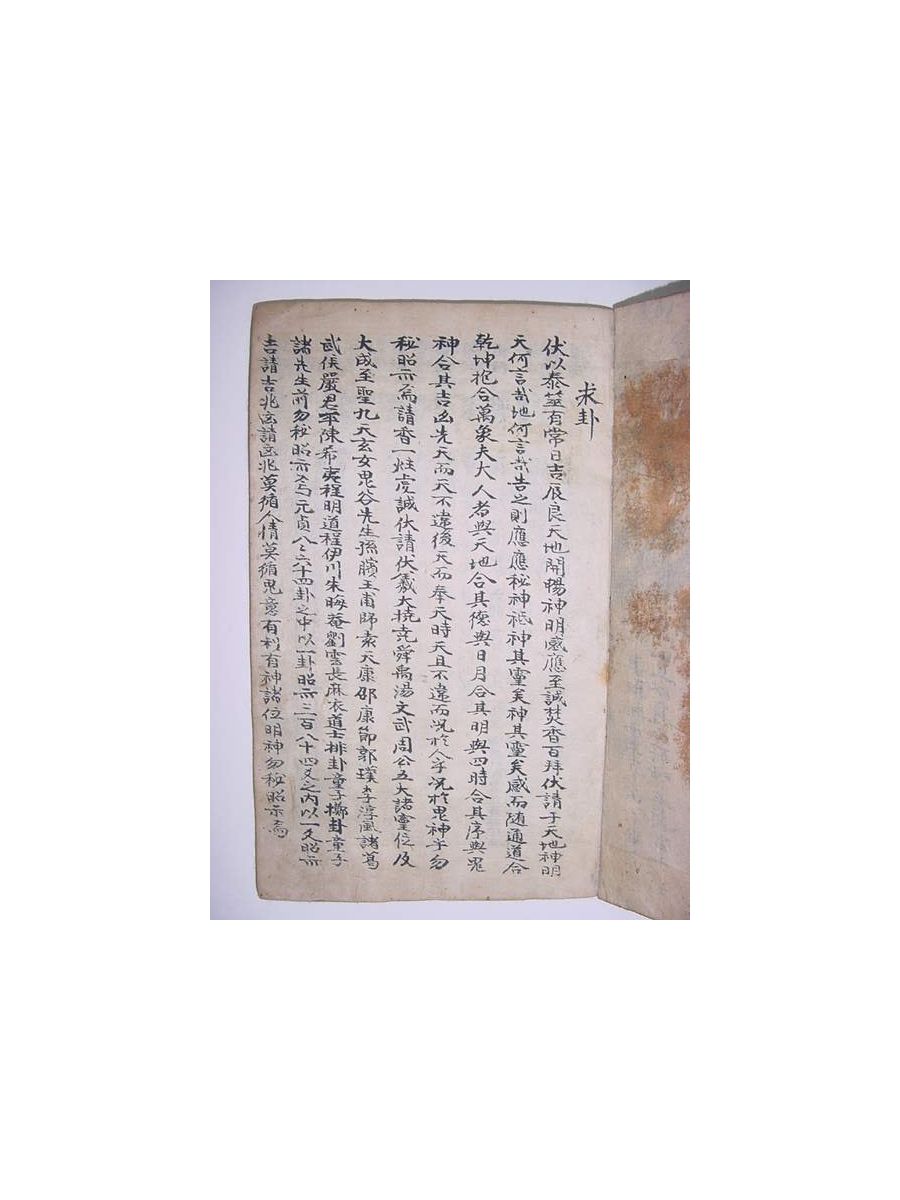 求卦
伏以泰筮有常日吉辰良天地開暢神明感應至誠焚香百拜伏請于天地神明
天何言哉地何言哉告之則應應秘神祗神其靈矣神其靈矣感而随通道合
乾坤抱合萬象夫大人者與天地合其德與日月合其明與四時合其序與鬼
神合其吉凶先天而天不違後天而奉天時天且不違而况於人乎况於鬼神乎勿
秘昭示焉請香一炷虔誠伏請伏羲大撓尭舜禹湯文武周公五大諸靈位及
大成至聖九天玄女鬼谷先生孫臏王甫師素天康邵康節郭璞李淳風諸葛
武侯嚴君平陳希夷程明道程伊川朱晦菴劉雲長麻衣道士排卦童子擲卦童子
諸先生前勿秘昭示焉元貞八〻六十四卦之中以一卦昭示三百八十四爻之内以一爻昭示
吉請吉兆凶請凶兆莫循人情莫循鬼意有利有神諸位明神勿秘昭示焉